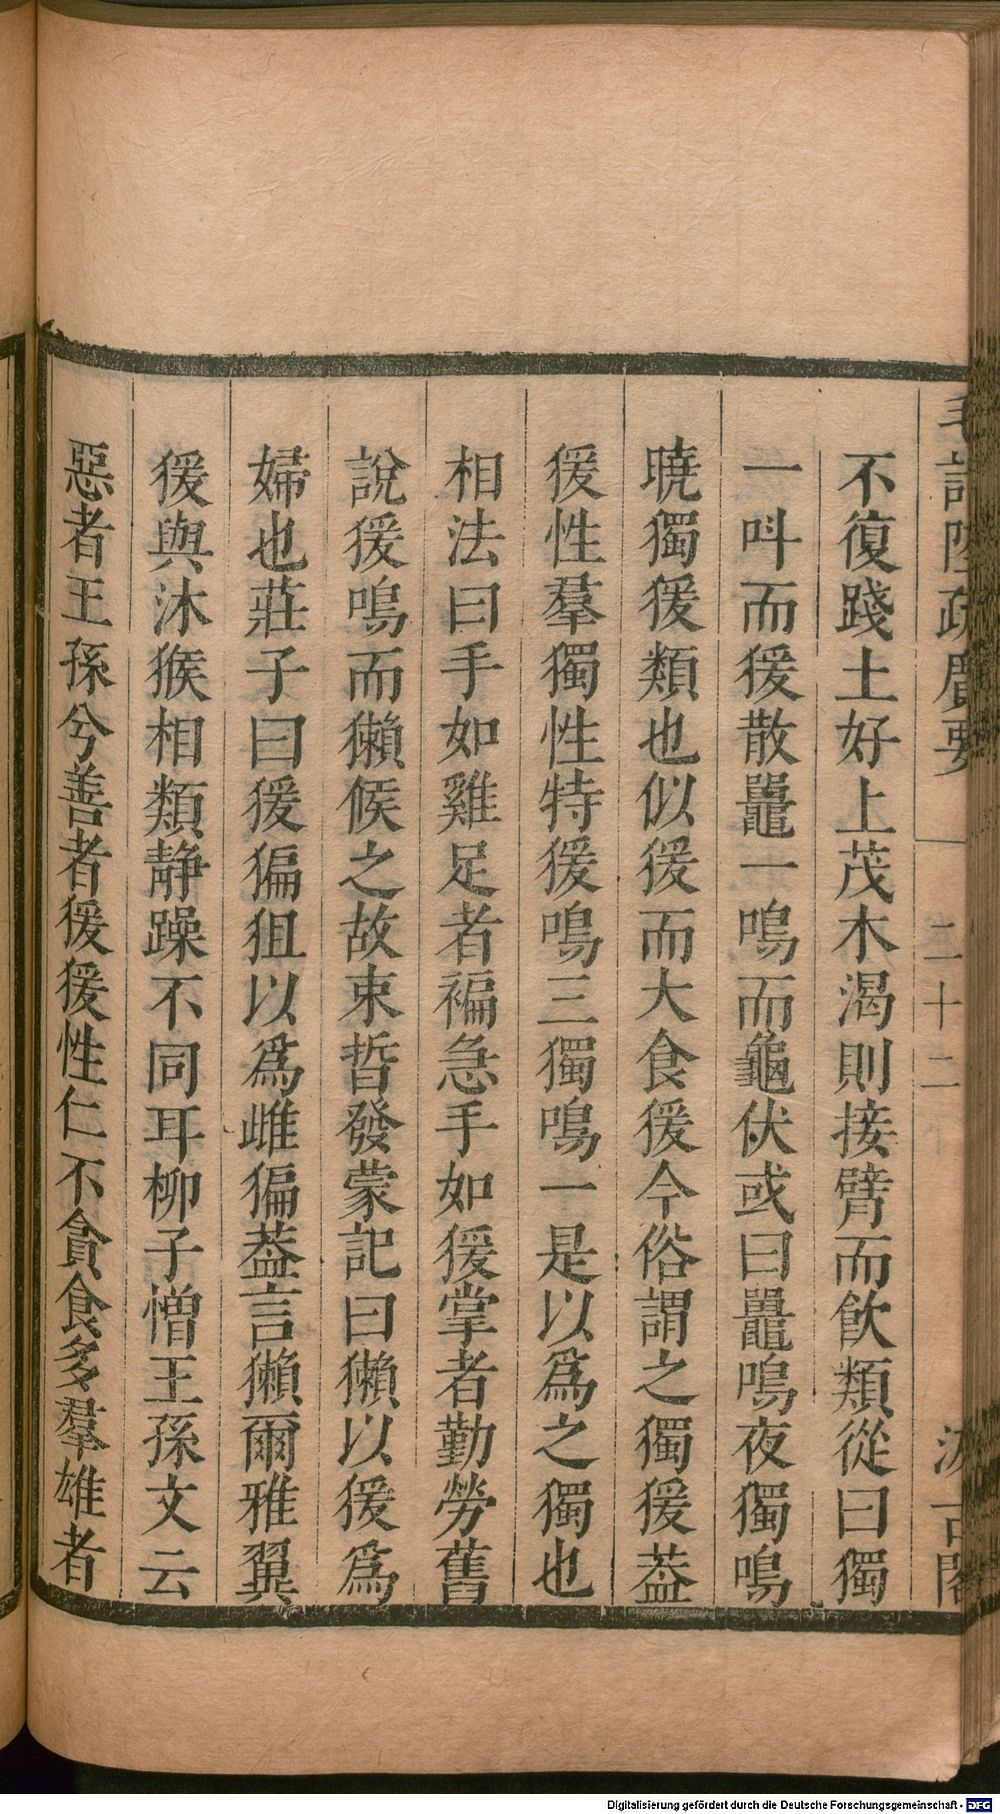 毛詩陸疏廣要 二十二 汲古閣
不復踐土好上茂木渴則接臂而飲類從曰獨
一呌而猨散鼉一鳴而龜伏或曰鼉鳴夜獨鳴
曉獨猨類也似猨而大食猨今俗謂之獨猨葢
猨性羣獨性特猨鳴三獨鳴一是以爲之獨也
相法曰手如雞足者褊急手如猨掌者勤勞舊
說猨鳴而獺候之故束晳發蒙記曰獺以猨爲
婦也莊子曰猨猵狙以爲雌猵葢言獺爾雅翼
猨與沐猴相類靜躁不同耳柳子憎王孫文云
惡者王孫兮善者猨猨性仁不貪食多羣雄者
Digitalisierung gefördert durch die Deutsche Forschungsgemeinschaft - DFG